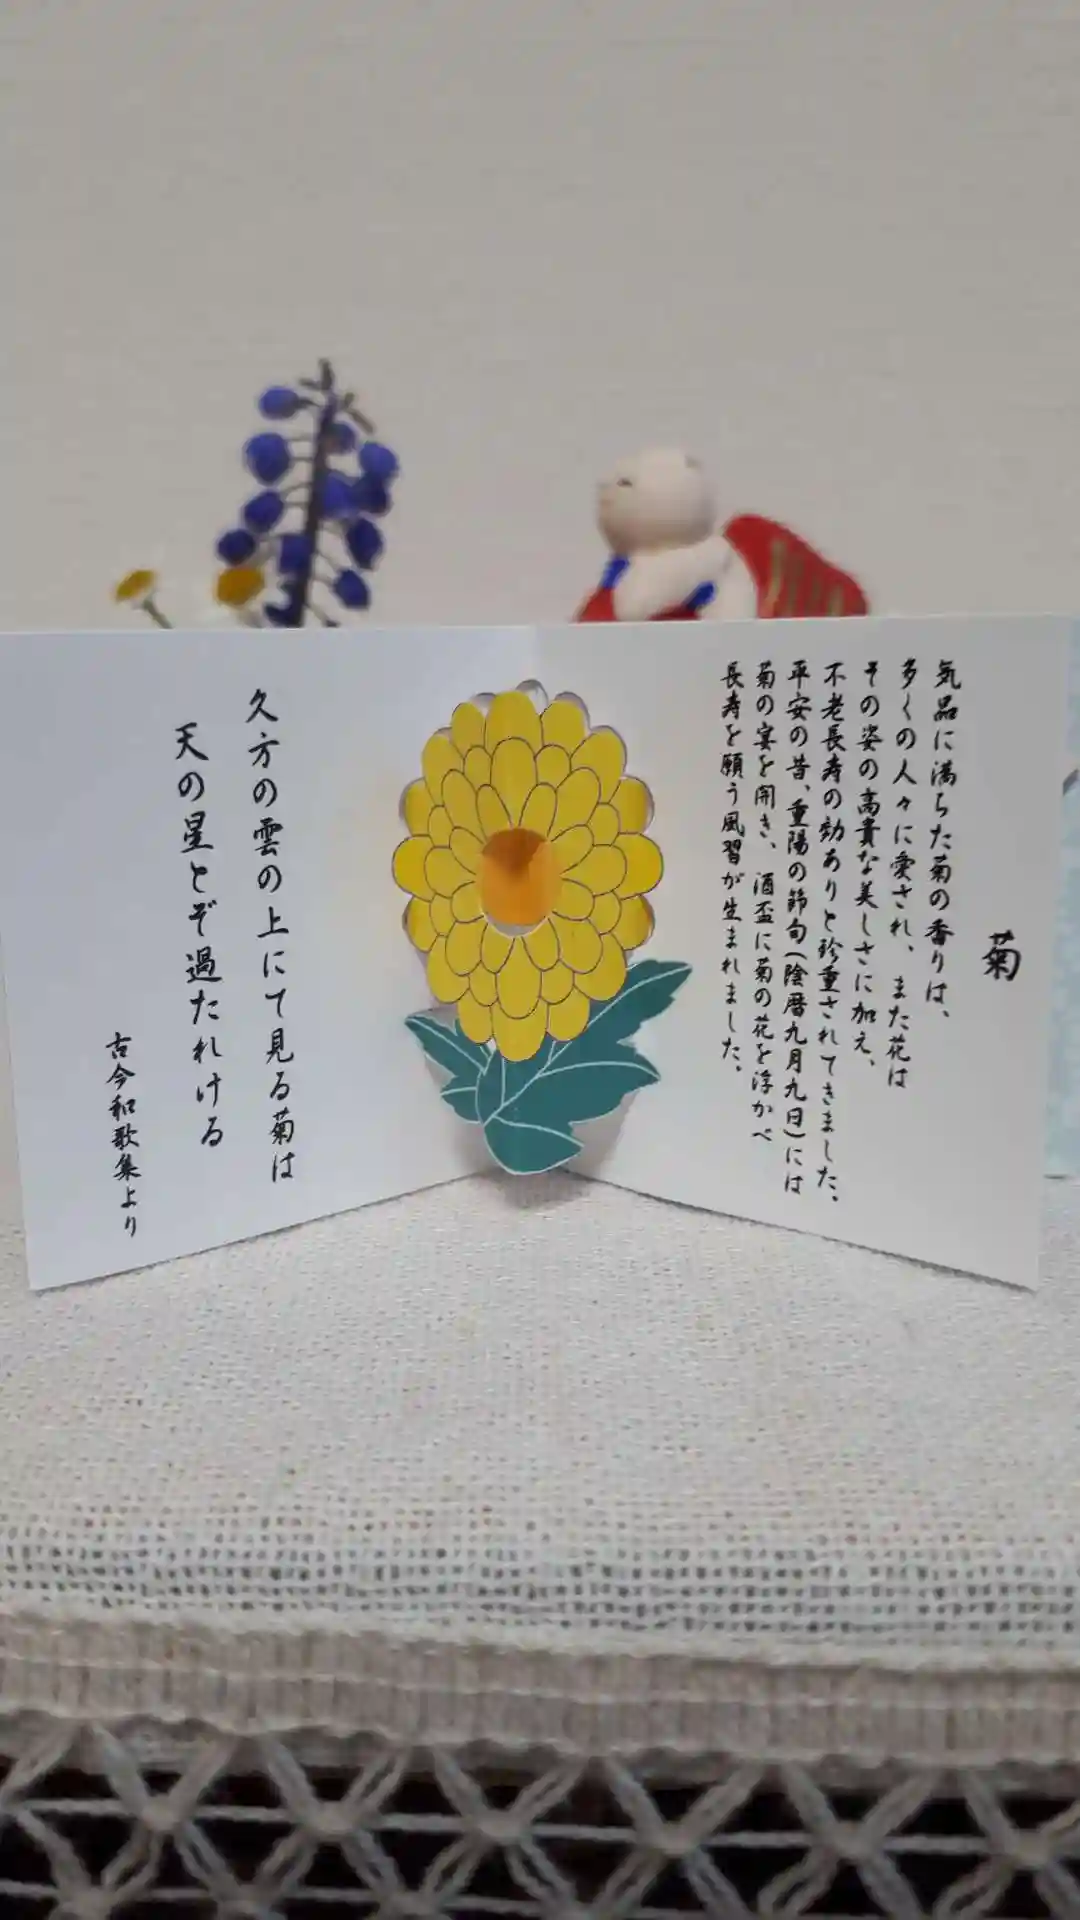 菊
気品に満ちた菊の香りは、
多くの人々に愛され、また花は
その姿の高貴な美しさに加え、
不老長寿の効ありと珍重されてきました、
平安の昔、重陽の節句(陰暦九月九日)には
菊の宴を開き、酒盃に菊の花を浮かべ
長寿を願う風習が生まれました、
久方の雲の上にて見る菊は
天の星とぞ過たれける
古今和歌集より